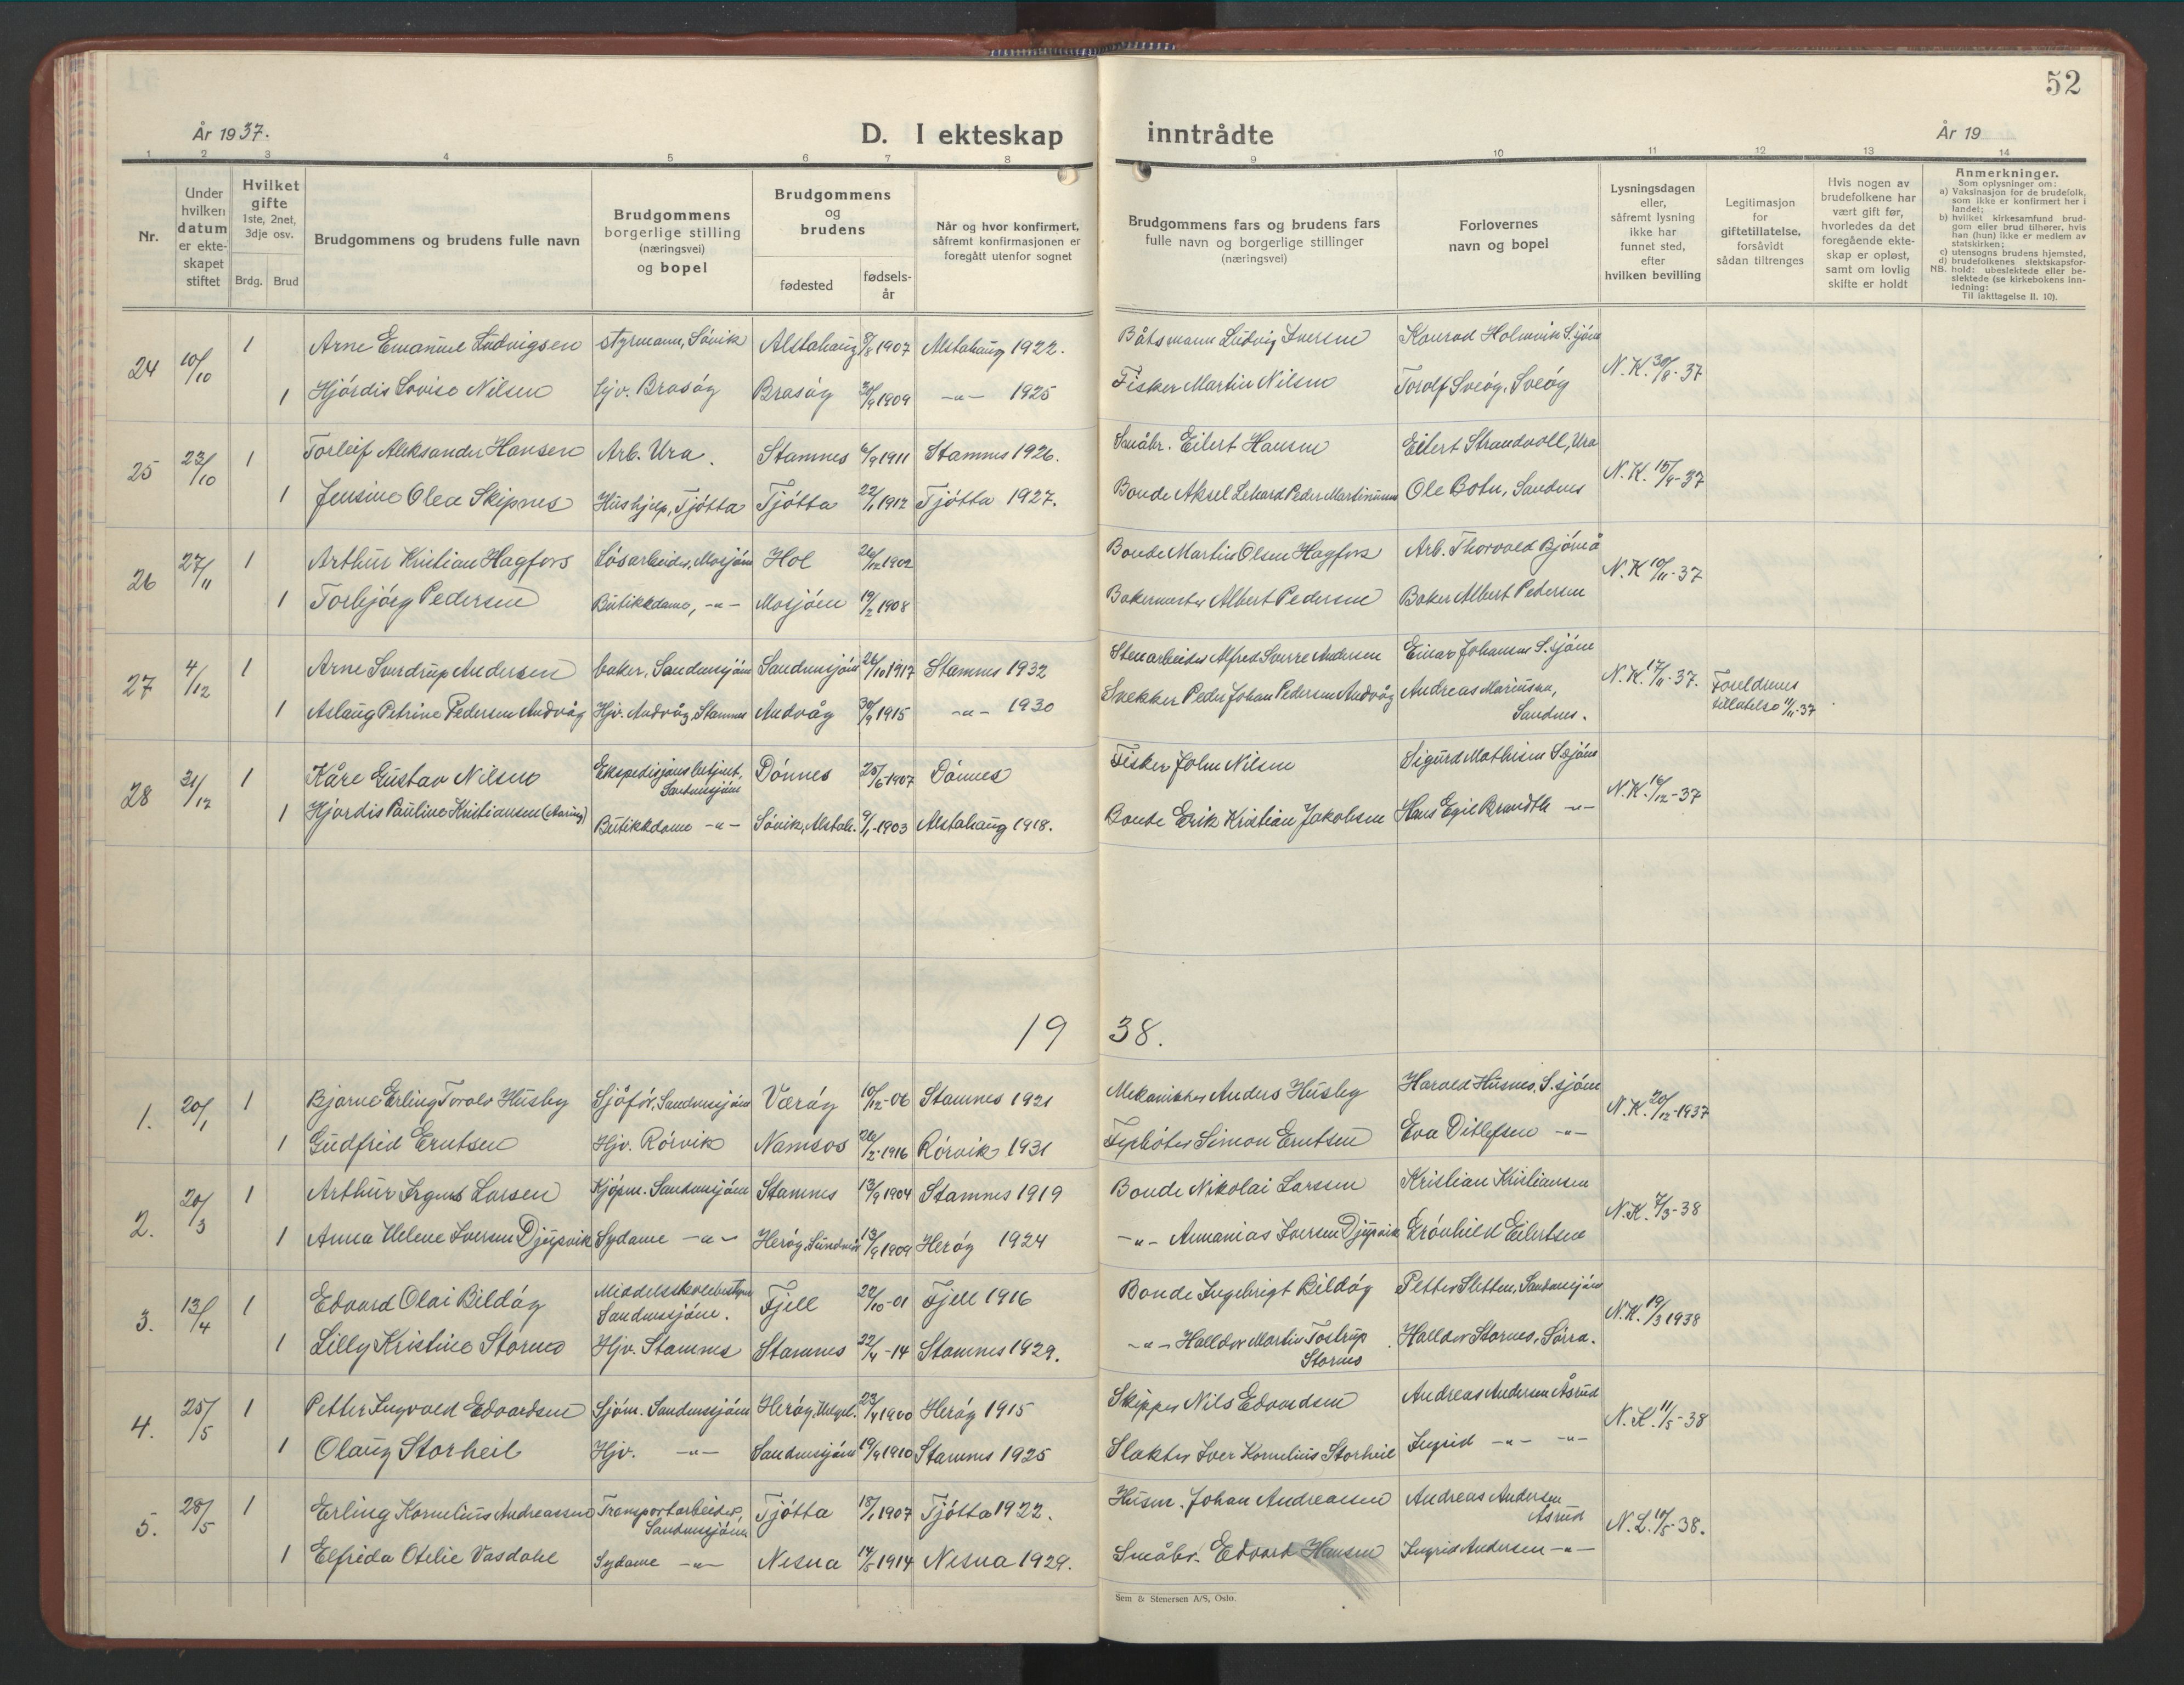 52
År 1937.
D. I ekteskap inntrådte
År 19
1 2 3 4 5 6 7 8 9 10 11 12 13 14
Nr.
Under hvilken datum er ekteskapet stiftet
Hvilket gifte 1ste, 2net, 3dje osv.
Brdg. Brud
Brudgommens og brudens fulle navn
Brudgommens borgerlige stilling (næringsvei) og bopel
Brudgommens og brudens
fødested
fødsels-år
Når og hvor konfirmert, såfremt konfirmasjonen er foregått utenfor sognet
Brudgommens fars og brudens fars fulle navn og borgerlige stillinger (næringsvei)
Forlovernes navn og bopel
Lysningsdagen eller, såfremt lysning ikke har funnet sted, efter hvilken bevilling
Legitimasjon for giftetillatelse, forsåvidt sådan tiltrenges
Hvis nogen av brudefolkene har vært gift før, hvorledes da det foregående ekteskap er opløst, samt om lovlig skifte er holdt
Anmerkninger.
Som oplysninger om:
a) Vaksinasjon for de brudefolk, som ikke er konfirmert her i landet;
b) hvilket kirkesamfund brudgom eller brud tilhører, hvis han (hun) ikke er medlem av statskirken;
c) utensogns brudens hjemsted,
d) brudefolkenes slektskapsforhold: ubeslektede eller beslektede (se kirkebokens innledning:
NB.
Til iakttagelse II. 10).
24 10/10 1 Arne Emanuel Ludvigsen styrmann, Søvik Alstahaug 8/8 1907 Alstahaug 1922. Båtsmann Ludvig Iversen Konrad Holmvik S.sjøen N.K. 30/8-37
1 Hjørdis Lovise Nilsen hjv. Brasøy Brasøy 20/9 1909 -"- 1925 Fisker Martin Nilsen Torolf Sveøy, Sveøy
25 23/10 1 Torleif Aleksander Hansen Arb. Ura. Stamnes 6/9 1911 Stamnes 1926. Småbr. Eilert Hansen Eilert Strandvoll, Ura N.K. 15/9-37
1 Jensine Olea Skipnes Hushjelp, Tjøtta Tjøtta 22/1 1912 Tjøtta 1927. Bonde Aksel Lehard Peder Martinussen Ole Botn, Sandnes
26 27/11 1 Arthur Kristian Hagfors Løsarbeider, Mosjøen Hol 26/12 1902 Bonde Martin Olsen Hagfors Arb. Thorvald Bjørnå N.K 10/11-37
1 Torbjørg Pedersen Butikkdame, -"- Mosjøen 19/2 1908 Bakermester Albert Pedersen Baker Albert Pedersen
27 4/12 1 Arne Sverdrup Andersen baker, Sandnessjøen Sandnessjøen 26/10 1917 Stamnes 1932 Stenarbeider Alfred Sverre Andersen Einar Johansen S.sjøen N.K. 17/11-37. Foreldrenes
tillatelse 11/11-37
1 Aslaug Petrine Pedersen Andvåg Hjv. Andvåg, Stamnes Andvåg 30/9 1915 -"- 1930 Snekker Peder Johan Pedersen Andvåg Andreas Mariussen,
Sandnes.
28 31/12 1 Kåre Gustav Nilsen Ekspedisjonsbetjent, Dønnes 25/6-1907 Dønnes Fisker John Nilsen Sigurd Mathisen S.sjøen N.K. 16/12-37
Sandnessjøen
1 Hjørdis Pauline Kristiansen Butikkdame -"- Søvik, Alstah. 9/1-1903 Alstahaug 1918. Bonde Erik Kristian Jakobsen Hans Egil Brandth -"-
19 38.
1. 20/1 1 Bjarne Erling Torolv Husby Sjåfør, Sandnessjøen Værøy 10/12-06 Stamnes 1921 Mekaniker Anders Husby Harald Husnes, S.sjøen N.K. 20/12-1937
1 Gudfrid Erntsen Hjv. Rørvik Namsos 26/2-1916 Rørvik 1931 Fyrbøter Simon Erntsen Eva Ditlefsen -"-
2. 20/3 1 Arthur Irgens Larsen Kjøpm. Sandnessjøen Stamnes 13/9 1904 Stamnes 1919 Bonde Nikolai Larssen Kristian Kristiansen N.K. 7/3-38
1 Anna Helene Iversen Djupvik Sydame -"- Herøy, Sundmør 13/9 1909 Herøy 1924 -"- Annanias Iversen Djupvik Grønhild Eilertsen
3. 13/4 1 Edvard Olai Bildøy Middelskolebestyrer Fjell 22/10-01 Fjell 1916 Bonde Ingebrigt Bildøy Petter Sletten, Sandnessjøen N.K. 19/3 1938
Sandnessjøen.
1 Lilly Kristine Stornes Hjv. Stamnes Stamnes 22/4-14 Stamnes 1929. -"- Halldor Martin Tostrup Halldor Stornes, Sørra.
Stornes
4. 25/5 1 Petter Ingvald Edvardsen Sjøm. Sandnessjøen Herøy, Helgel. 23/4 1900 Herøy 1915 Skipper Nils Edvardsen Andreas Andersen Åsrud N.K. 11/5-38
1 Olaug Storheil Hjv. -"- Sandnessjøen 19/9 1910 Stamnes 1925 Slakter Iver Kornelius Storheil Ingrid -"- -"-
5. 28/5 1 Erling Kornelius Andreassen Transportarbeider, Tjøtta 18/1 1907 Tjøtta 1922. Husm. Johan Andreassen Andreas Andersen N.L. 10/5-38.
Sandnessjøen Åsrud
1 Elfrida Otelie Vasdahl Sydame -"- Nesna 14/5 1914 Nesna 1929. Småbr. Edvard Hansen Ingrid Andersen -"-
Sem & Stenersen A/S, Oslo.